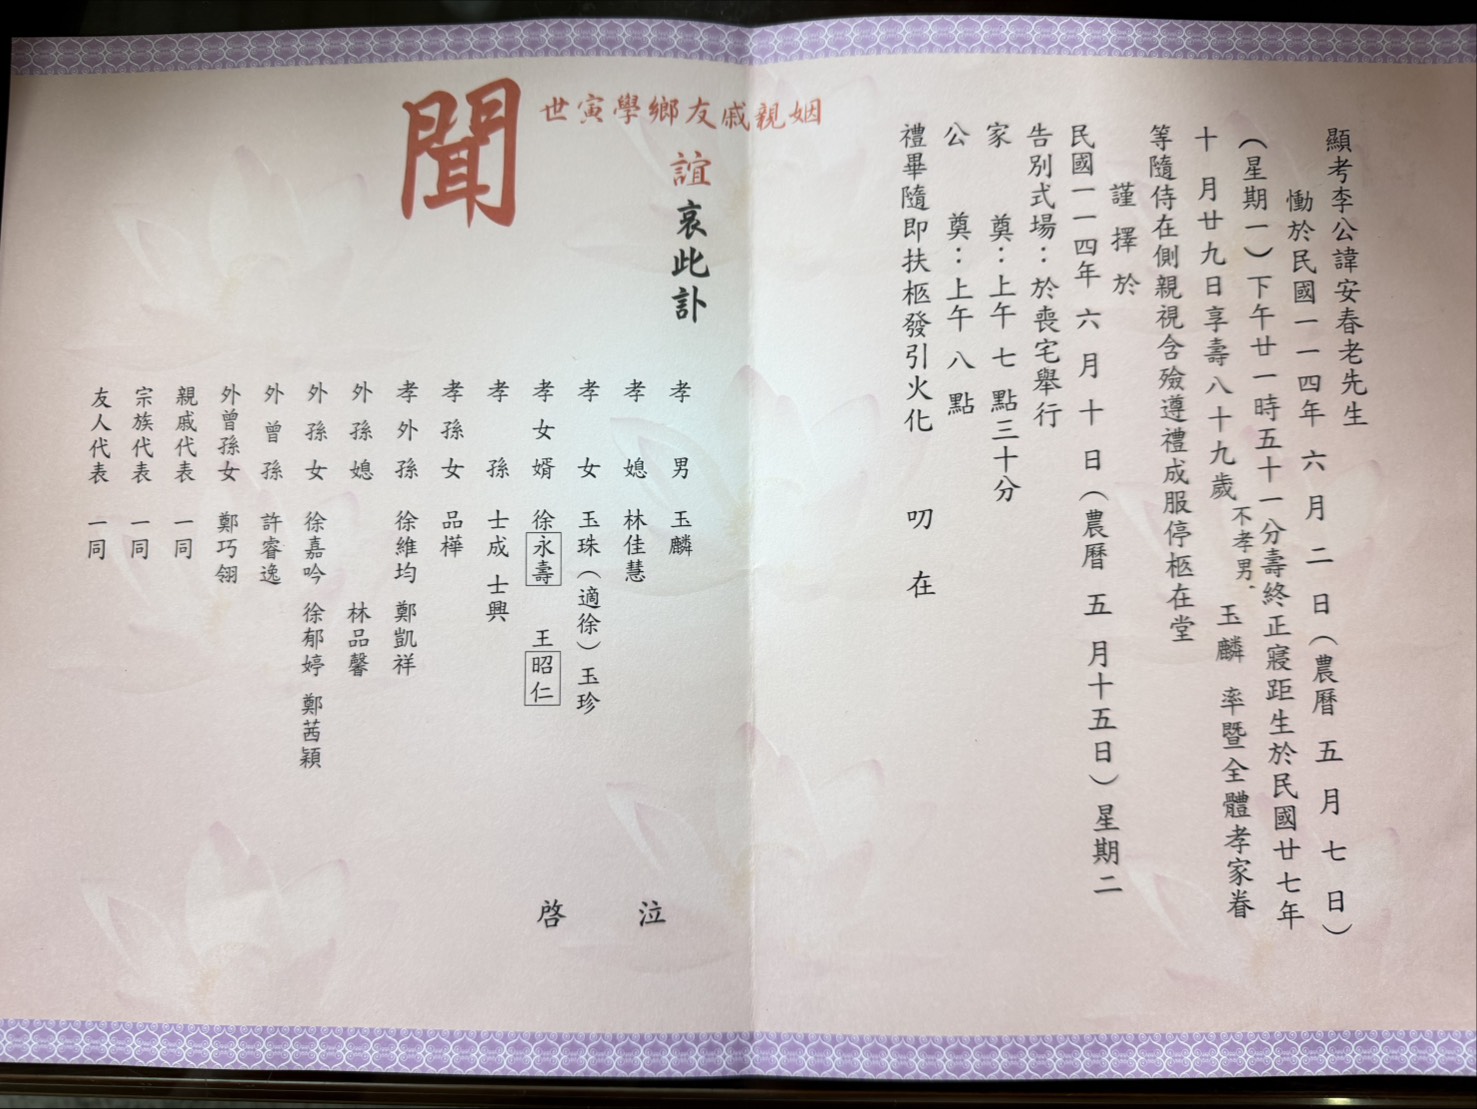 顯考李公諱安春老先生
慟於民國一一四年 六 月 二 日（農曆 五 月 七 日）
（星期一）下午廿一時五十一分壽終正寢距生於民國廿七年
十 月廿九日享壽八十九歲不孝男．玉麟 率暨全體孝家眷
等隨侍在側親視含殮遵禮成服停柩在堂
謹擇於
民國一一四年 六 月 十 日（農曆 五 月十五日）星期二
告別式場：於喪宅舉行
家 奠：上午 七 點三十分
公 奠：上午 八 點
禮畢隨即扶柩發引火化 叨 在
姻親戚友鄉學寅世
誼哀此訃
聞
孝 男 玉麟
孝 媳 林佳慧
孝 女 玉珠（適徐）玉珍
孝女婿 徐永壽 王昭仁
孝 孫 士成 士興
孝孫女 品樺
孝外孫 徐維均 鄭凱祥
外孫媳 林品馨
外孫女 徐嘉吟 徐郁婷 鄭茜穎
外曾孫 許睿逸
外曾孫女 鄭巧翎
親戚代表 一同
宗族代表 一同
友人代表 一同
泣
啓